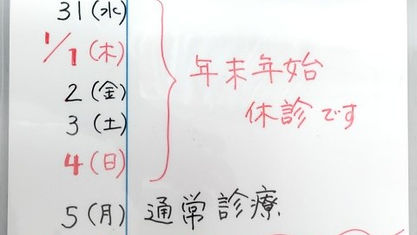 31(水)
1/1(木)
2(金)
3(土)
4(日)
年末年始
休診です
5(月) 通常診療